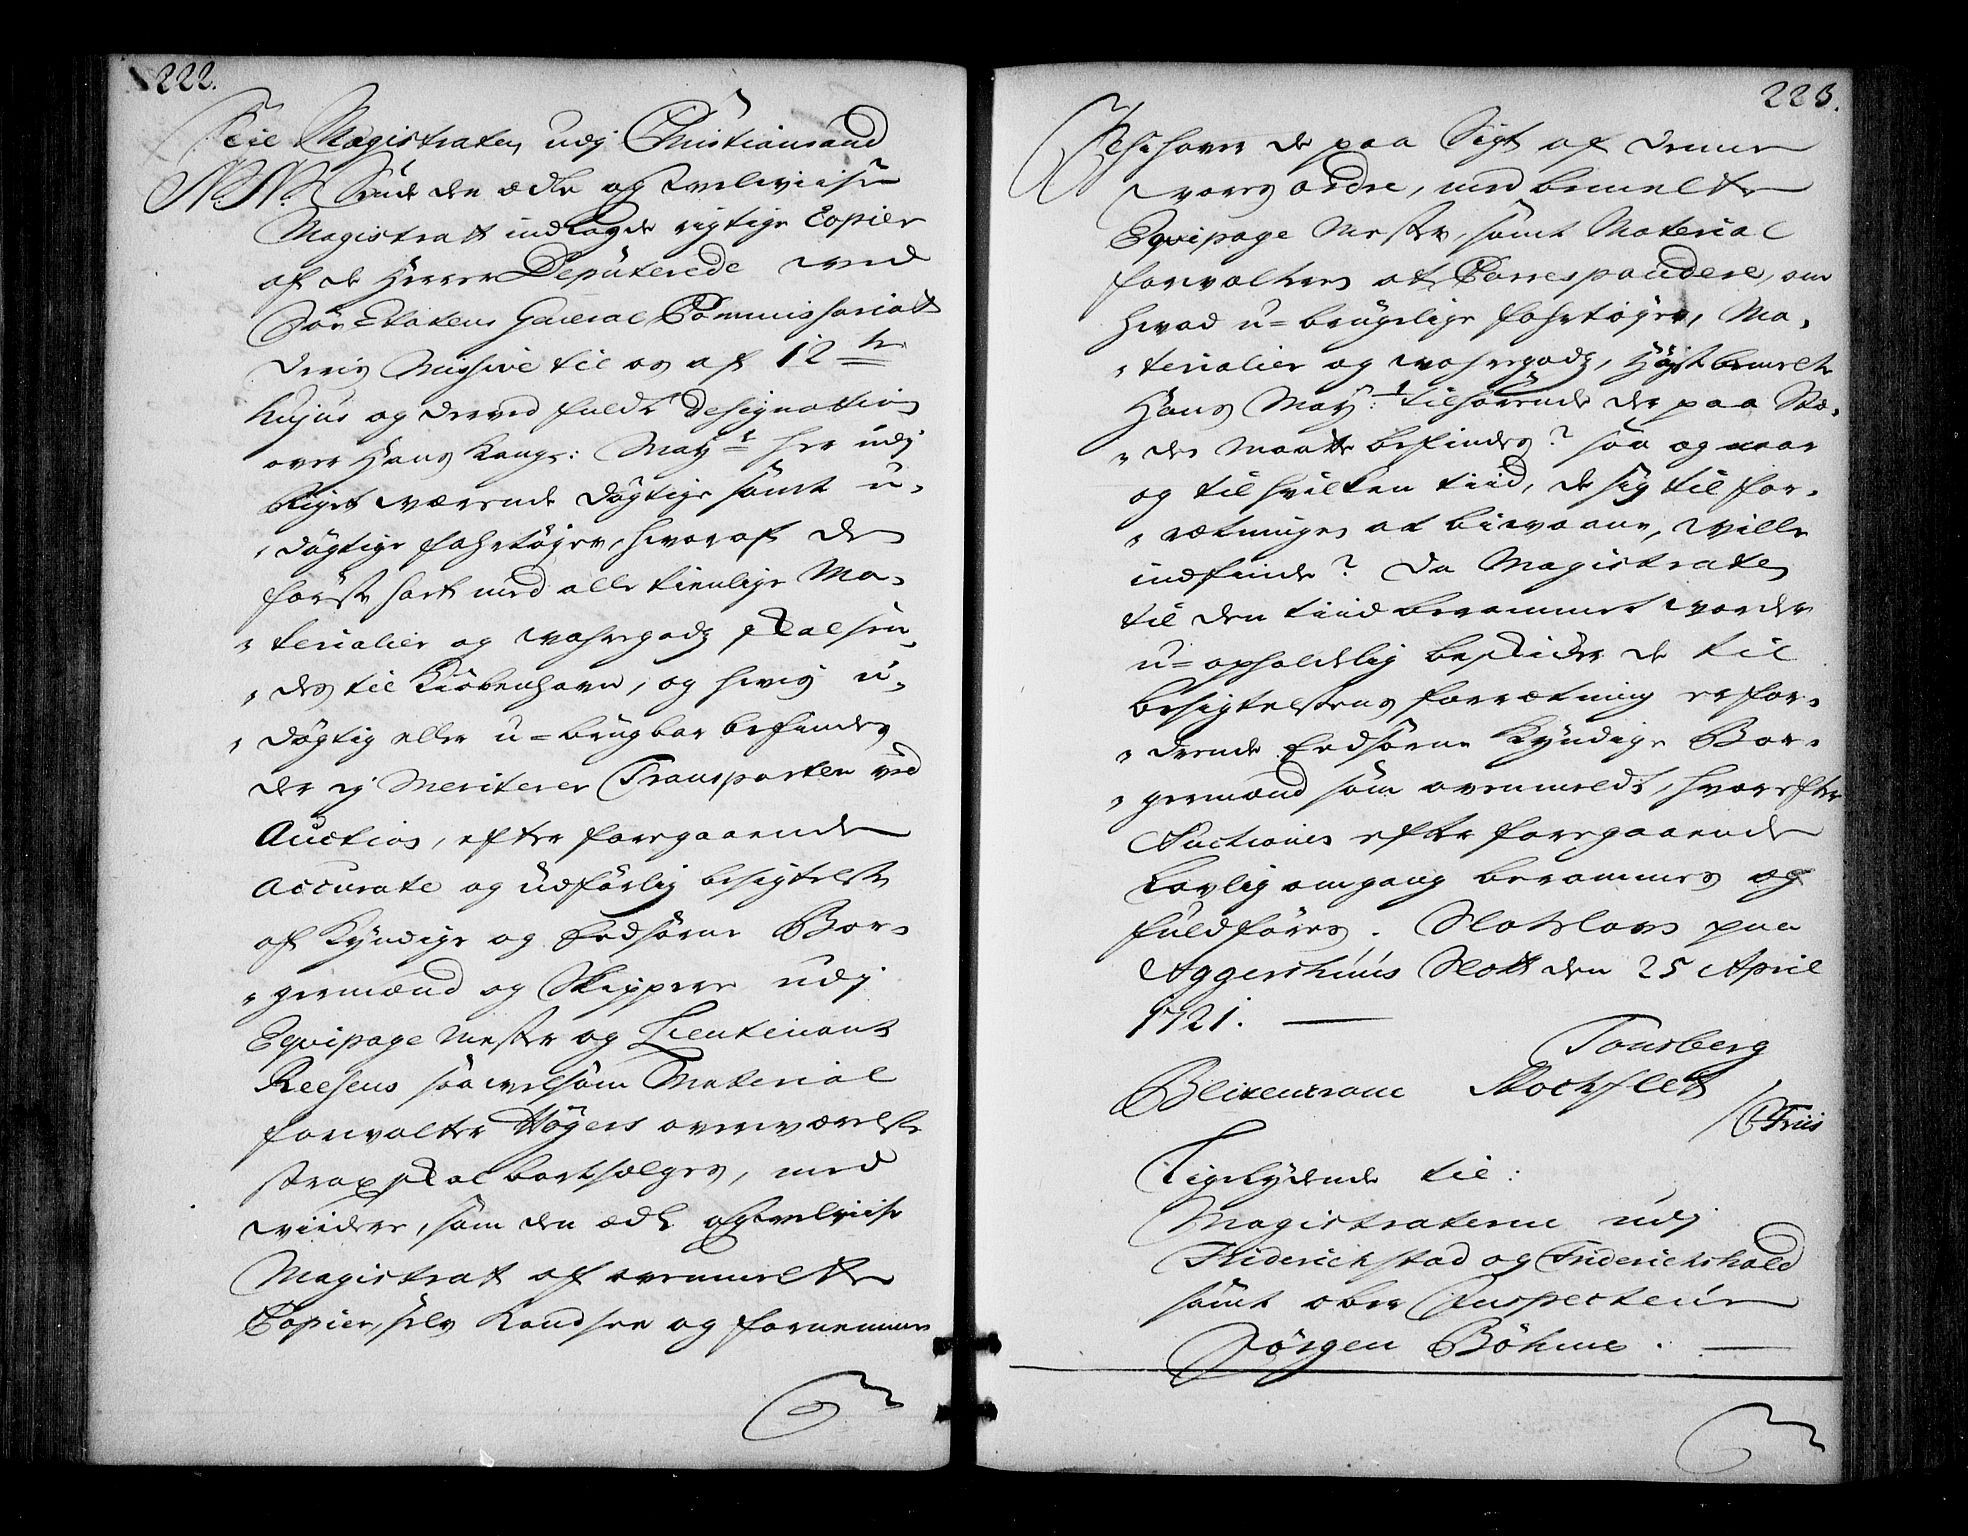 222.
Till Magistraten udj Christiansand
N. N. Sende den ædle og velwiise
Magistratt indlagde rigtige Copier
af de Herrer Deputerede ved
Söe-Etatens General Commissariatt
deris Missive til os af 12te
hujus og derved fuldte Designation
over Hans Kongl: Mayts her udj
Riget værende dögtige samt u-
dögtige fahrtöjer, hvoraf den
förste sort med alle tienlige Ma-
terialier og vahregods skal sen-
des til Kiöbenhavn, og hvis u-
dögtig eller u-brugbar befindes
der ej Meriterer Transporten ved
Auction, efter foregaaende
accurate og udförlig besigtelse
af Kyndige og Eedsorne Bor-
germænd og Skippere udj
Equipage Mester og Lieutenant
Reesens saavelsom Material
forvalter Högers overværelse
strax skal bortsælges, med
viidere, som den ædle og velviise
Magistrat af ovenmelte
Copier, selv Kand see og fornemme
223.
Behover de paa Sigt af denne
vores ordre, med bemelte
Equipage Mester, samt Material
forvalteren at Correspondere, om
hvad u-brugelige fahrtöyer, Ma-
terialier og vahregods, Höystbemelte
Hans Mayt: tilhörende der paa Stæ-
det maatte befindes? saa og naar
og til hvilken tiid, de sig til for-
rætningen at bievaane, ville
indfinde? Da Magistraten
til den tiid berammet vorder
u-opholdelig beskider de til
besigtelsens forrætning erfor-
drende Eedsorne Kyndige Bor-
germænd som ovenmeldt, hvorefter
Auctionen efter foregaaende
Lovlig omgang berammes og
fuldföres. Slotslowen paa
Aggershuus Slott den 25 April
1721.
Tonsberg
Blixencrone Stockflet
/ C Friis
Ligelydende til:
Magistraterne udj
Friderichstad og Friderichshald
samt ober Inspecteur
Jörgen Böhme.